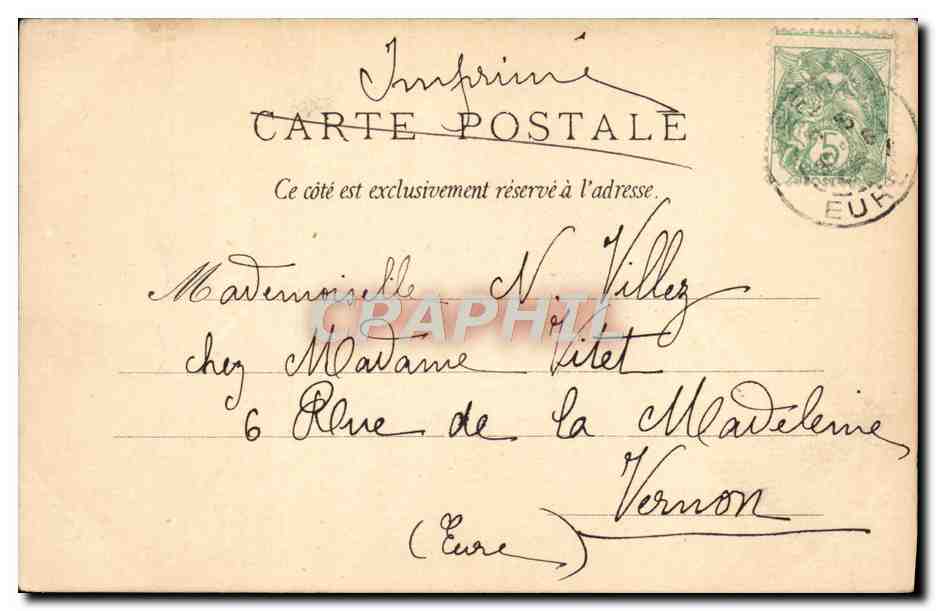 Imprimé
CARTE POSTALE
Ce côté est exclusivement réservé à l'adresse.
5
EURE
Mademoiselle N. Villez
CPARAPHIL
chez Madame Vitet
6 Rue de la Madeleine
Vernon
(Eure)